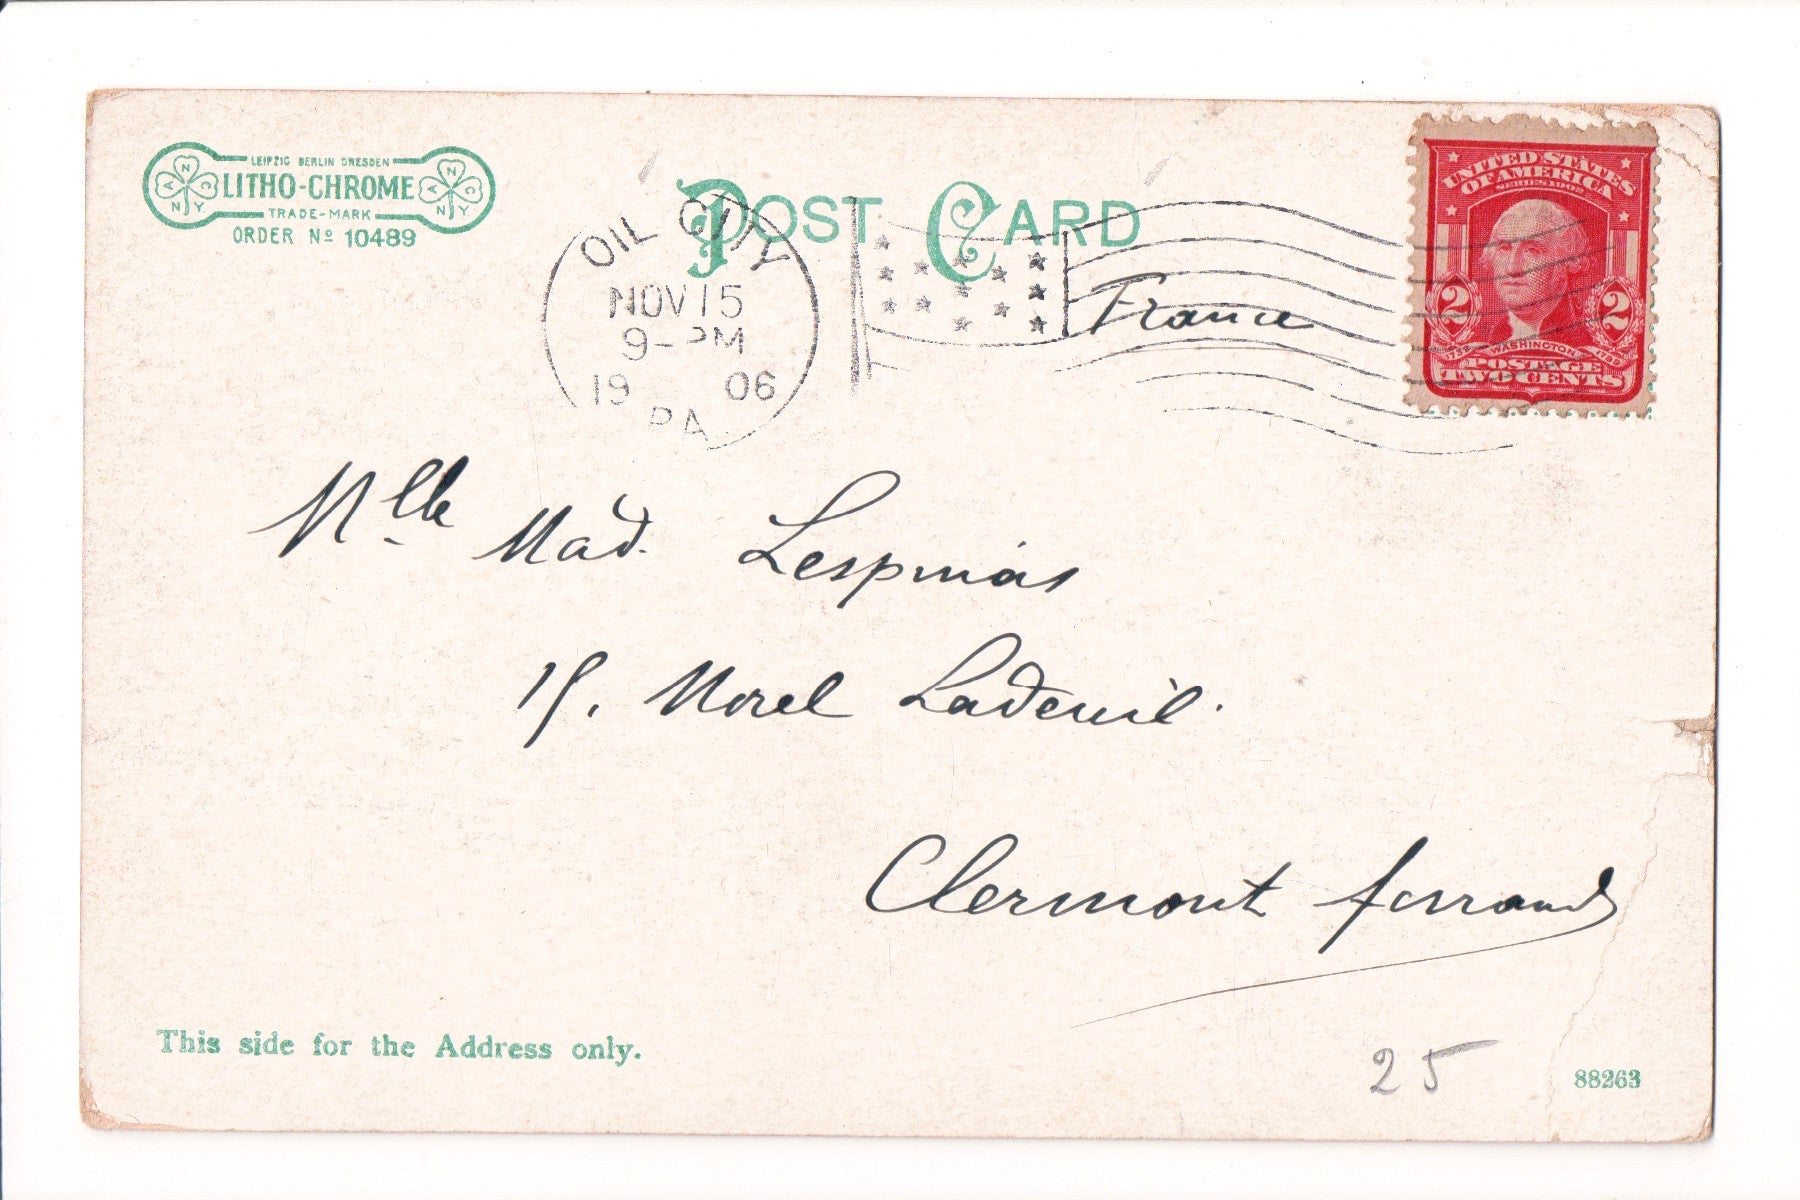 LEIPZIG BERLIN DRESDEN
LITHO-CHROME
TRADE-MARK
ORDER Nº 10489
A N C N Y
A N C N Y
POST CARD
OIL CITY
NOV 15
9- PM
19 06
PA.
France
UNITED STATES
OF AMERICA
SERIES 1902
2 2
1732 WASHINGTON 1799
POSTAGE
TWO CENTS
Mlle Mad. Lespinas
15. Morel Ladeuil.
Clermont ferrand
This side for the Address only.
25
88263